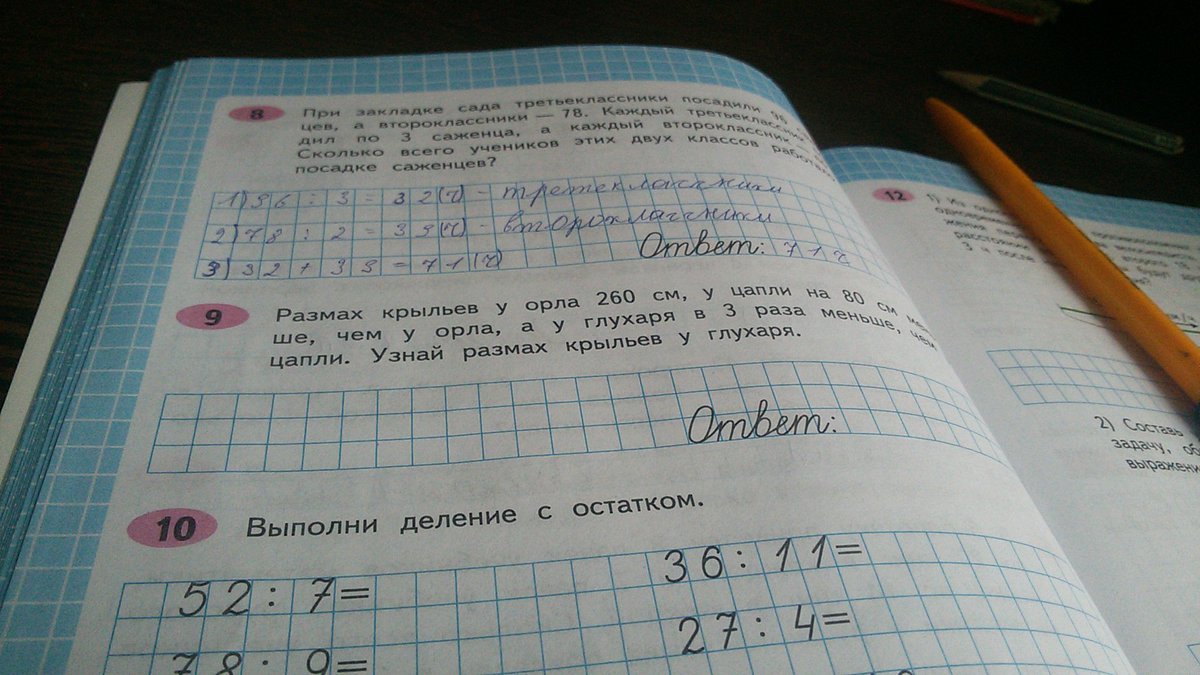 8 При закладке сада третьеклассники посадили 96
цев, а второклассники — 78. Каждый третьеклассник
дил по 3 саженца, а каждый второклассник
Сколько всего учеников этих двух классов
посадке саженцев?
1) 96 : 3 = 32 (ч) - третеклассники
2) 78 : 2 = 39 (ч) - второклассники
3) 32 + 39 = 71 (ч) Ответ: 71 ч
9 Размах крыльев у орла 260 см, у цапли на 80 см
ше, чем у орла, а у глухаря в 3 раза меньше, чем
цапли. Узнай размах крыльев у глухаря.
Ответ:
10 Выполни деление с остатком.
52 : 7 = 36 : 11 =
78 : 9 = 27 : 4 =
12 1) Из
3 ч после
2) Составь
задачу,